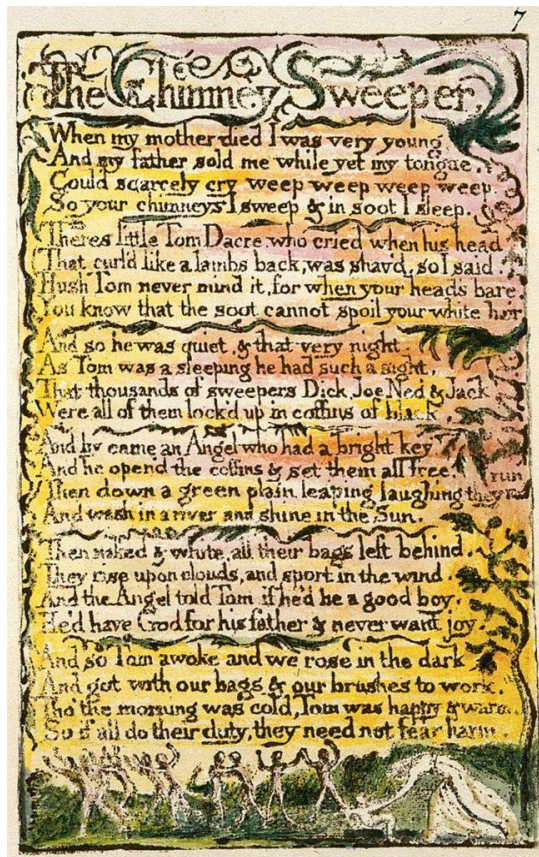 7
The Chimney Sweeper
When my mother died I was very young
And my father sold me while yet my tongue
Could scarcely cry weep weep weep weep.
So your chimneys I sweep & in soot I sleep.
Theres little Tom Dacre, who cried when his head
That curl'd like a lambs back, was shav'd, so I said.
Hush Tom never mind it, for when your heads bare,
You know that the soot cannot spoil your white hair
And so he was quiet, & that very night.
As Tom was a sleeping he had such a sight,
That thousands of sweepers Dick, Joe, Ned & Jack
Were all of them lock'd up in coffins of black,
And by came an Angel who had a bright key
And he open'd the coffins & set them all free.
Then down a green plain leaping laughing they run
And wash in a river and shine in the Sun.
Then naked & white, all their bags left behind.
They rise upon clouds, and sport in the wind.
And the Angel told Tom, if he'd be a good boy,
He'd have God for his father & never want joy.
And so Tom awoke and we rose in the dark
And got with our bags & our brushes to work.
Tho' the morning was cold, Tom was happy & warm.
So if all do their duty, they need not fear harm.